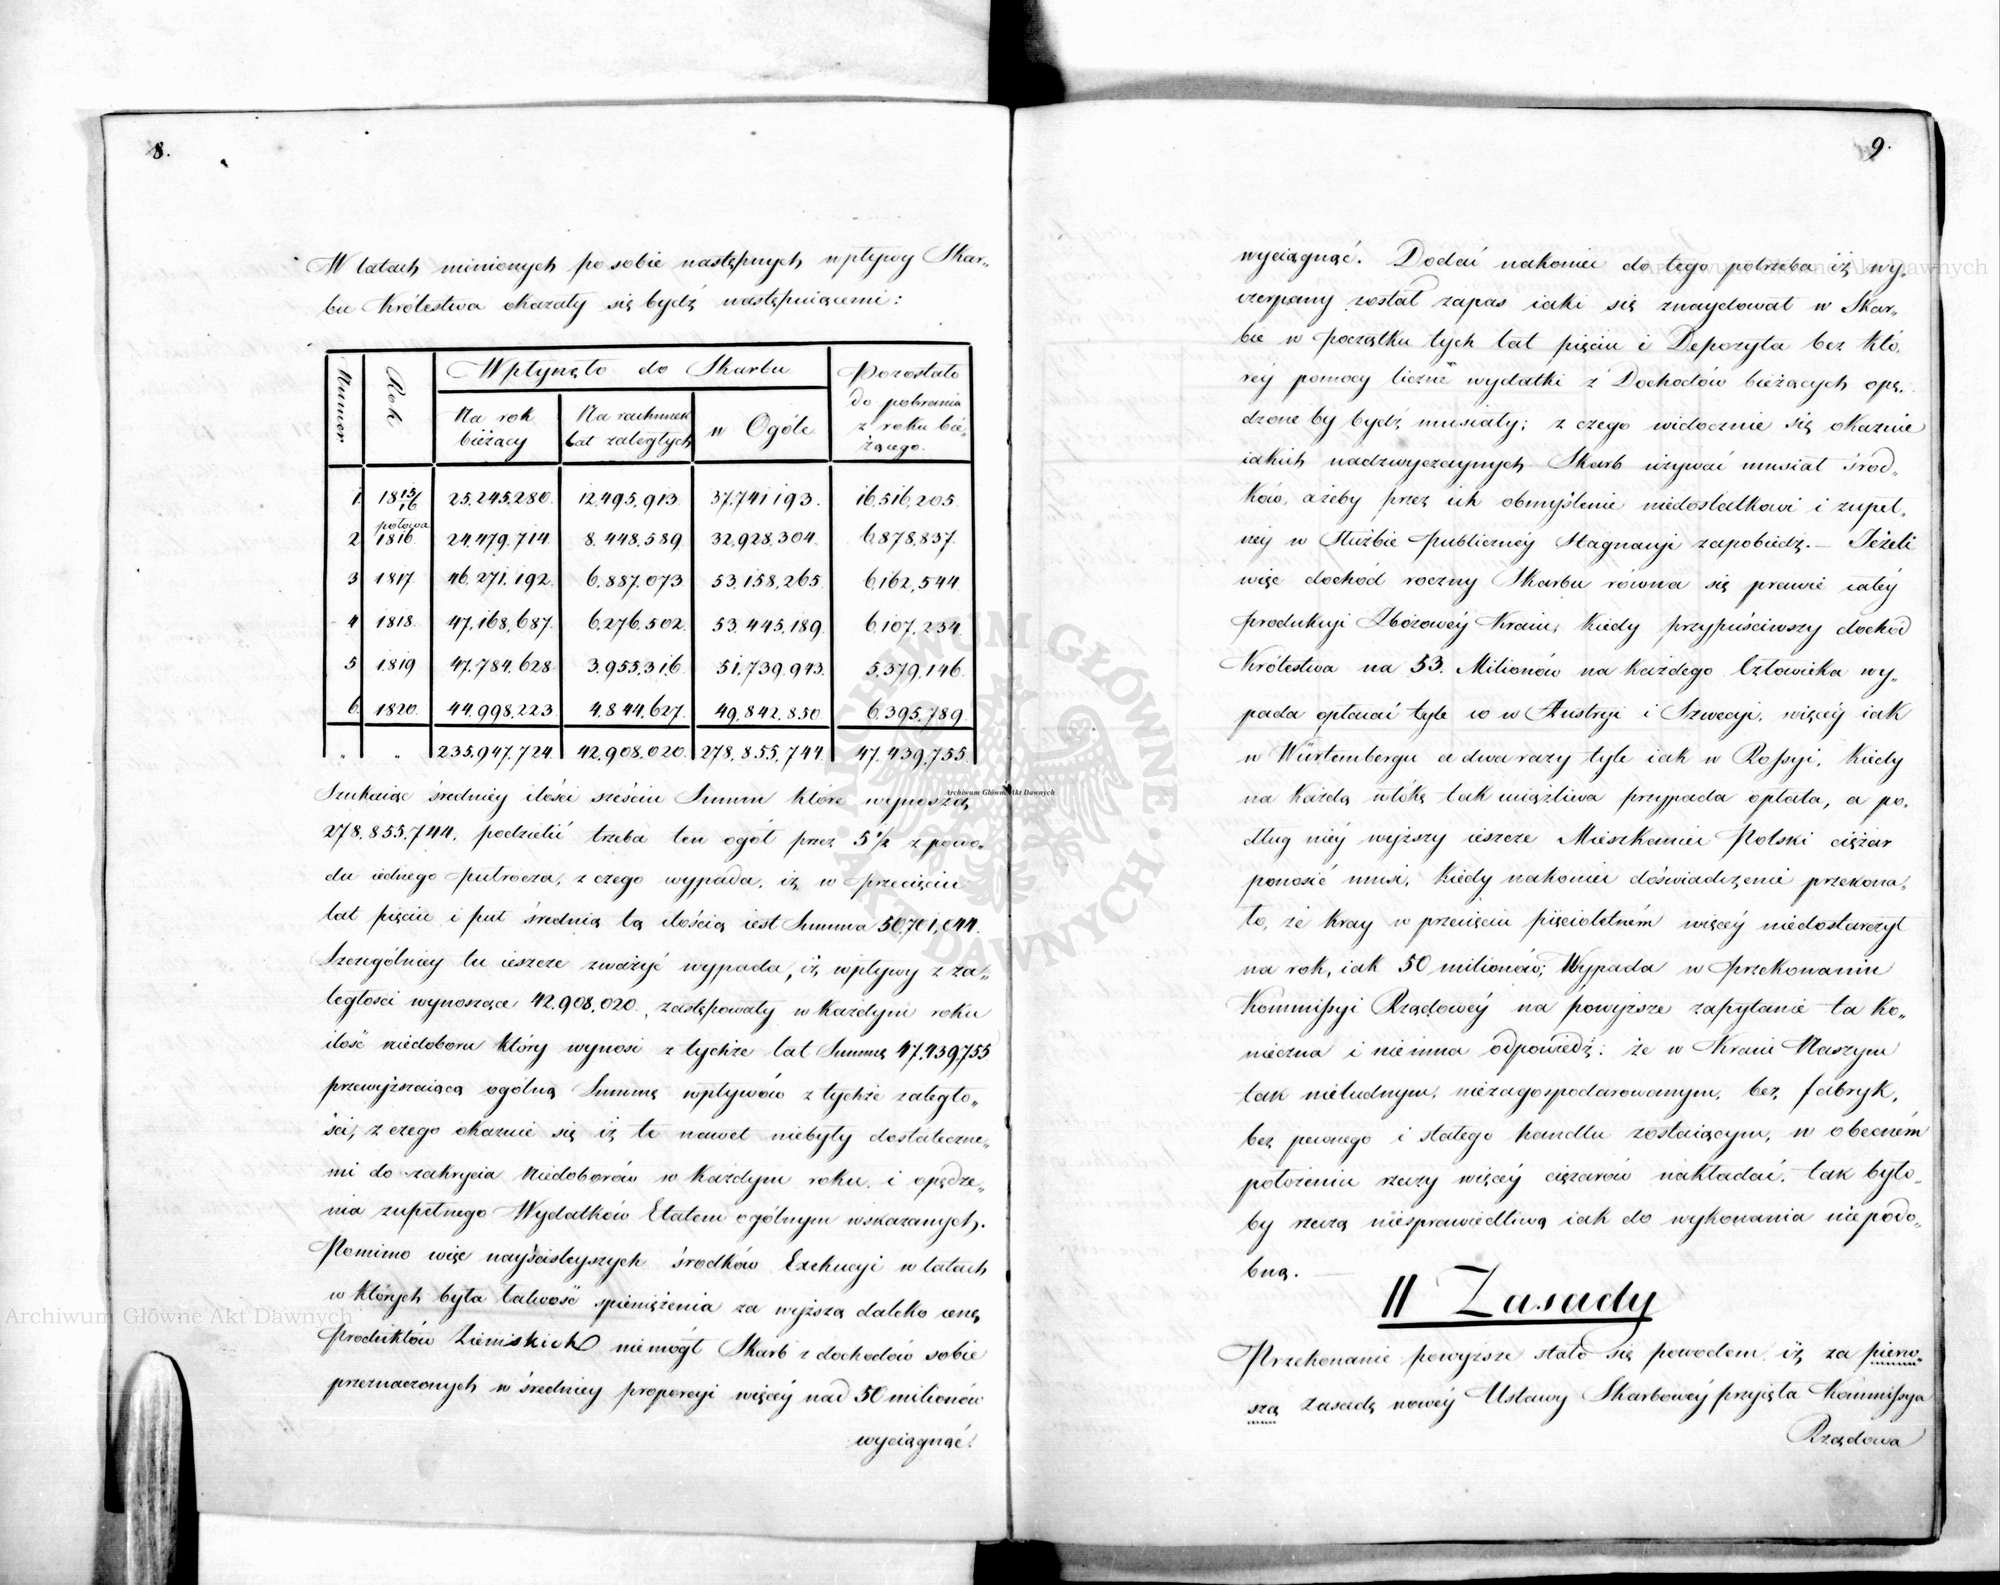 8.
W latach minionych po sobie następnych wpływy Skar-
bu Królestwa okazały się bydź następuiącemi:
Numer | Rok | Wpłynęło do Skarbu | Pozostało do pobrania z roku bie-żącego.
Na rok bieżący | Na rachunek lat zaległych | w Ogóle
1. | 1815/16 | 25.245.280. | 12.495.913. | 37.741.193. | 16.516.205.
2 | połowa 1816. | 24.479.714. | 8.448.589. | 32.928.304. | 6.878.837.
3 | 1817. | 46.271.192. | 6.887.073 | 53.158.265. | 6.162.544
4 | 1818. | 47.168.687. | 6.276.502. | 53.445.189. | 6.107.234
5 | 1819 | 47.784.628 | 3.955.316. | 51.739.943. | 5.379.146.
6. | 1820. | 44.998.223 | 4.844.627. | 49.842.850. | 6.395.789.
" | " | 235.947.724. | 42.908.020. | 278.855.744. | 47.439.755.
Szukaiąc średniey ilości sześciu Summ które wynoszą
278.855.744. podzielić trzeba ten ogół przez 5 1/2 z powo-
du iednego pułrocza, z czego wypada, iż w przecięciu
lat pięciu i puł średnią tą ilością iest Summa 50,701,044.
Szczególniey tu ieszcze zważyć wypada, iż wpływy z za-
ległości wynoszące 42.908.020., zastępowały w każdym roku
ilość niedoboru który wynosi z tychże lat Summę 47.439.755
przewyższaiącą ogólną Summę wpływów z tychże zaległo-
ści, z czego okazuie się iż te nawet niebyły dostateczne-
mi do zakrycia Niedoborów w każdym roku, i opędze-
nia zupełnego Wydatków Etatem ogólnym wskazanych.
Pomimo więc nayściśleyszych środków Exekucyi w latach
w których była łatwość spieniężenia za wyższą daleko cenę
produktów Ziemskich niemógł Skarb z dochodów sobie
przeznaczonych w średniey proporcyi więcéy nad 50 milionów
wyciągnąć.
9.
wyciągnąć. Dodać nakoniec do tego potrzeba iż wy-
czerpany został zapas iaki się znaydował w Skar-
bie w początku tych lat pięciu i Depozyta bez któ-
réy pomocy liczne wydatki z Dochodów bieżących opę-
dzone by bydź musiały; z czego widocznie się okazuie
iakich nadzwyczaynych Skarb używać musiał środ-
ków, ażeby przez ich obmyślenie niedostatkowi i zupeł-
néy w Służbie publicznéy Stagnacyi zapobiedz. — Jeżeli
więc dochód roczny Skarbu równa się prawie całéy
produkcyi Zbożowéy Kraiu, kiedy przypuściwszy dochód
Królestwa na 53. Milionów na każdego Człowieka wy-
pada opłacać tyle co w Austryi i Szwecyi, więcéy iak
w Würtembergu a dwa razy tyle iak w Rossyi, kiedy
na każdą włókę tak uciążliwa przypada opłata, a po-
dług niéy wyższy ieszcze Mieszkaniec Polski ciężar
ponosić musi, kiedy nakoniec doświadczenie przekona-
ło, że kray w przecięciu pięcioletném więcéy niedostarczył
na rok, iak 50 milionów; Wypada w przekonaniu
Kommissyi Rządowéy na powyższe zapytanie ta ko-
nieczna i nieinna odpowiedź: że w Kraiu Naszym
tak nieludnym, niezagospodarowanym, bez fabryk,
bez pewnego i stałego handlu zostaiącym, w obecném
położeniu rzeczy więcéy ciężarów nakładać, tak było-
by rzeczą niesprawiedliwą iak do wykonania niepodo-
bną.
II Zasady
Przekonanie powyższe stało się powodem iż za pierw-
szą Zasadę nowéy Ustawy Skarbowéy przyięła Kommissya
Rządowa
Archiwum Główne Akt Dawnych
Archiwum Główne Akt Dawnych
Archiwum Główne Akt Dawnych
ARCHIWUM GŁÓWNE AKT DAWNYCH